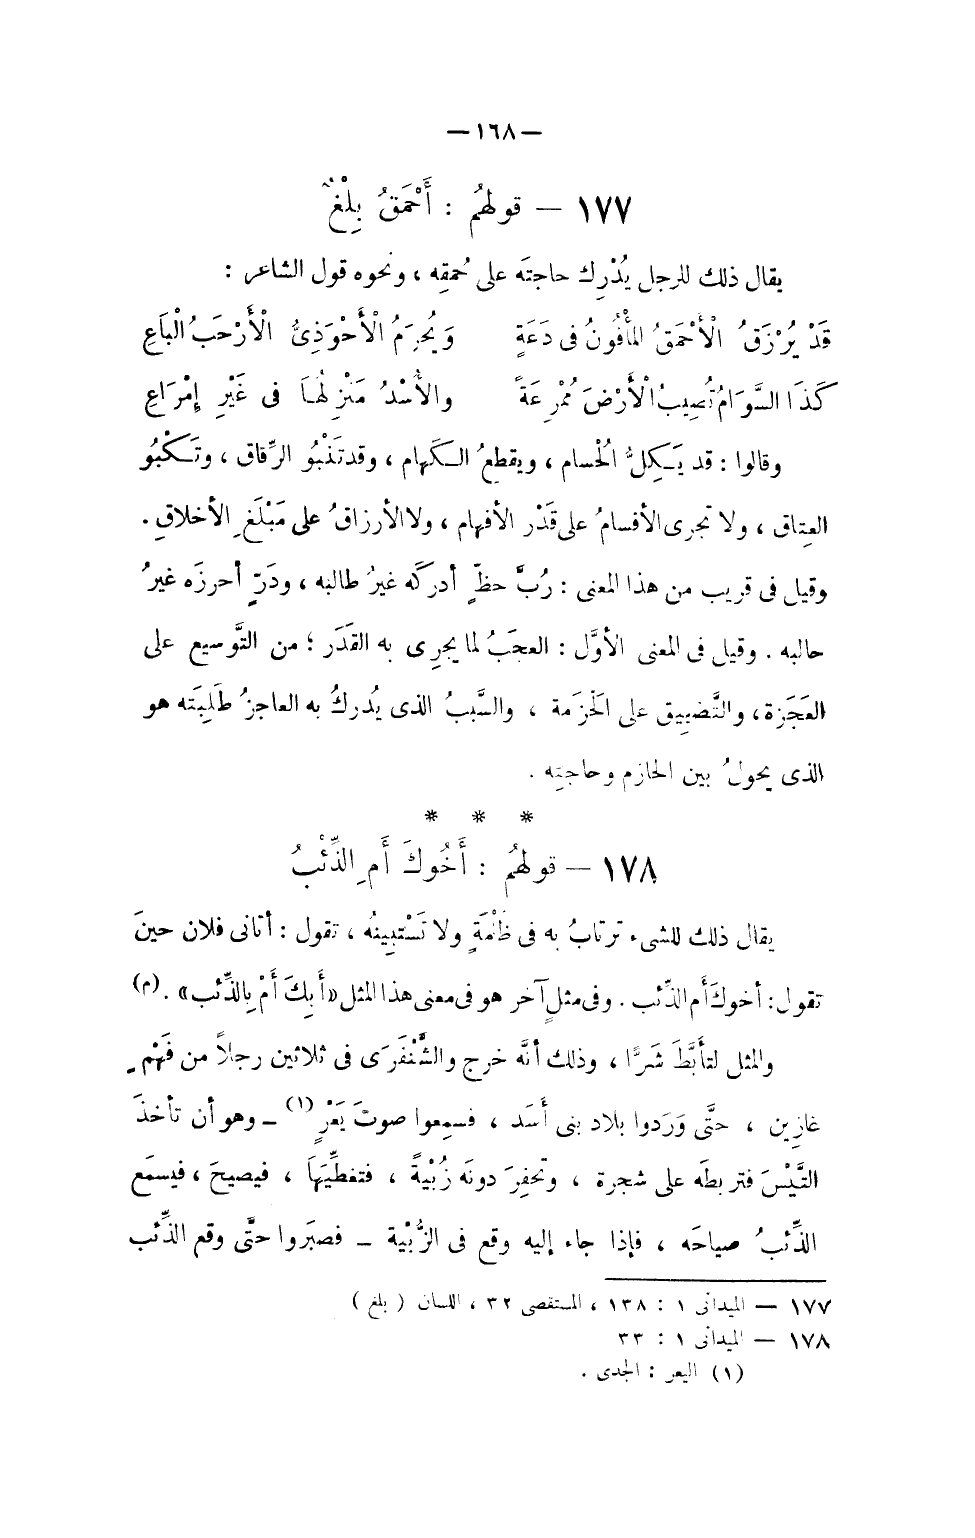 — ١٦٨ —
١٧٧ — قولهُم : أَحْمَقُ بِلْغٌ
يقال ذلك للرجل يُدْرِك حاجتَه على حُمقِه ، ونحوه قول الشاعر :
قَدْ يُرْزَقُ الْأَحْمَقُ المَأْفُونُ فى دَعَةٍ وَيُحْرَمُ الْأَحْوَذِىُّ الْأَرْحَبُ الْبَاعِ
كَذَا السَّوَامُ تُصِيبُ الْأَرْضَ مُمْرِعَةً والأُسْدُ مَنْزِلُهَا فى غَيْرِ إِمْرَاعِ
وقالوا : قد يَكِلُّ الْحُسام ، ويقطعُ الكَهام ، وقد تَنْبُو الرِّقاق ، وتَكْبُو
العِتاق ، ولا تجرى الأقسامُ على قَدْر الأفهام ، ولا الأرزاقُ على مَبْلَغِ الأخلاقِ .
وقيل فى قريب من هذا المعنى : رُبَّ حظٍّ أدركَه غيرُ طالبه ، ودَرٍّ أحرزَه غيرُ
حالبه . وقيل فى المعنى الأوَّل : العجَبُ لما يجرِى به القَدَر ؛ من التَّوسيع على
العَجَزة ، والتَّضييق على الحَزمَة ، والسَّببُ الذى يُدركُ به العاجزُ طَلِبَته هو
الذى يحولُ بين الحازم وحاجتِه .
* * *
١٧٨ — قولهُم : أَخُوكَ أَمِ الذِّئْبُ
يقال ذلك للشىء ترتابُ به فى ظُلْمَةٍ ولا تَسْتَبِينُه ، تقول : أتانى فلان حينَ
تقول : أخوكَ أَم الذِّئب . وفى مثلٍ آخر هو فى معنى هذا المثل «أَبِكَ أَمْ بِالذِّئب» . (م)
والمثل لتأَبَّطَ شَرًّا ، وذلك أنَّه خرج والشَّنْفَرَى فى ثلاثين رجلاً من فَهْمٍ
غازِين ، حتَّى وَرَدوا بلاد بنى أَسَد ، فسمِعوا صوتَ يَعْرٍ (١) – وهو أن تأخذَ
التَّيْسَ فتربطَه على شجرة ، وتحفِرَ دونَه زُبْيةً ، فتغطِّيَهَا ، فيصيحَ ، فيسمَع
الذِّئبُ صياحَه ، فإذا جاء إليه وقع فى الزُّبْية – فصبَروا حتَّى وقع الذِّئب
١٧٧ — الميدانى ١ : ١٣٨ ، المستقصى ٣٢ ، اللسان ( بلغ )
١٧٨ — الميدانى ١ : ٣٣
(١) اليعر : الجدى .